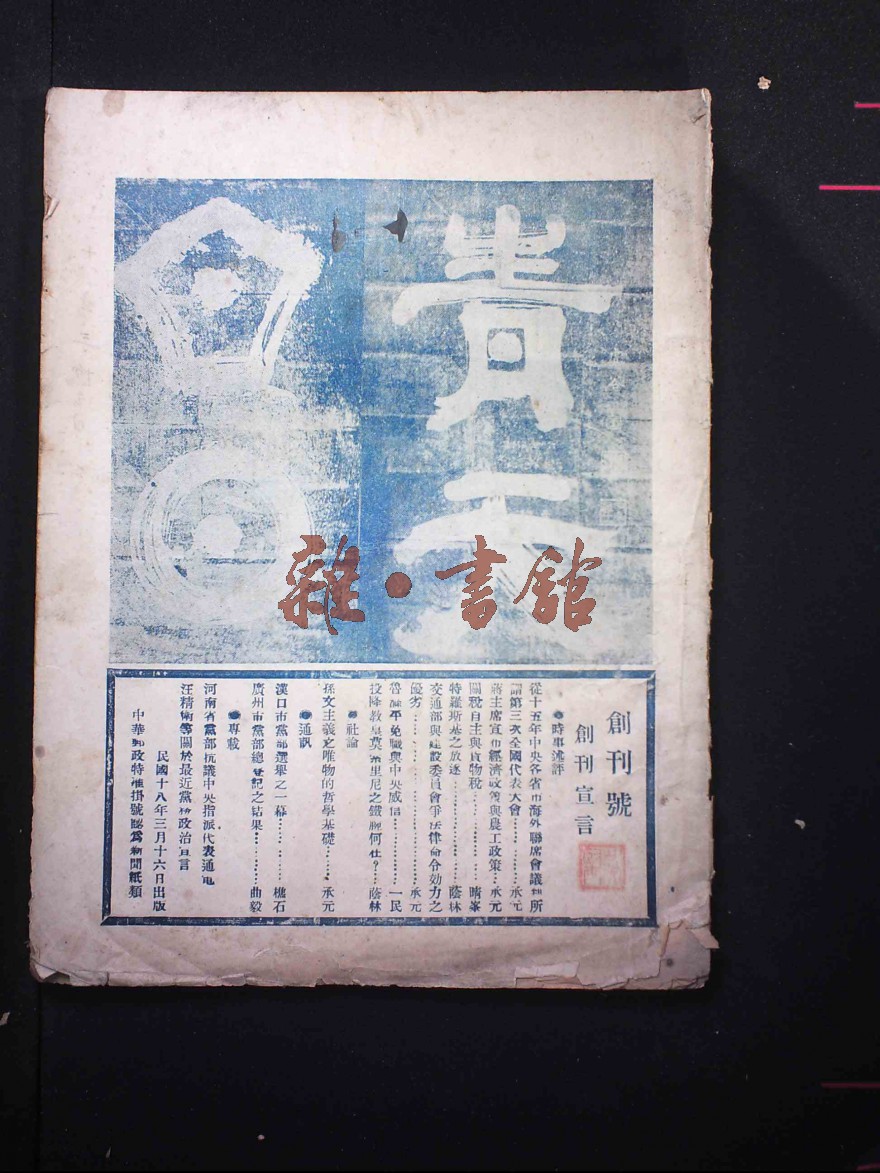 青天
白日
雜·書舘
創刊號
創刊宣言
●時事述評
從十五年中央各省市海外聯席會議
請第三次全國代表大會…………承元
蔣主席宣布經濟政策與農工政策…承元
關稅自主與貨物稅…………晴峯
特羅斯基之放逐…………蔭林
交通部與建設委員會爭法律命令効力之
優劣…………承元
魯滌平免職與中央威信…………一民
投降教皇莫索里尼之鐵腕何在?…蔭林
●社論
孫文主義之唯物的哲學基礎……承元
●通訊
漢口市黨部選舉之一幕…………樵石
廣州市黨部總登記之結果…………曲毅
●專載
河南省黨部抗議中央指派代表通電
汪精衛等關於最近黨務政治宣言
民國十八年三月十六日出版
中華郵政特准掛號認爲新聞紙類